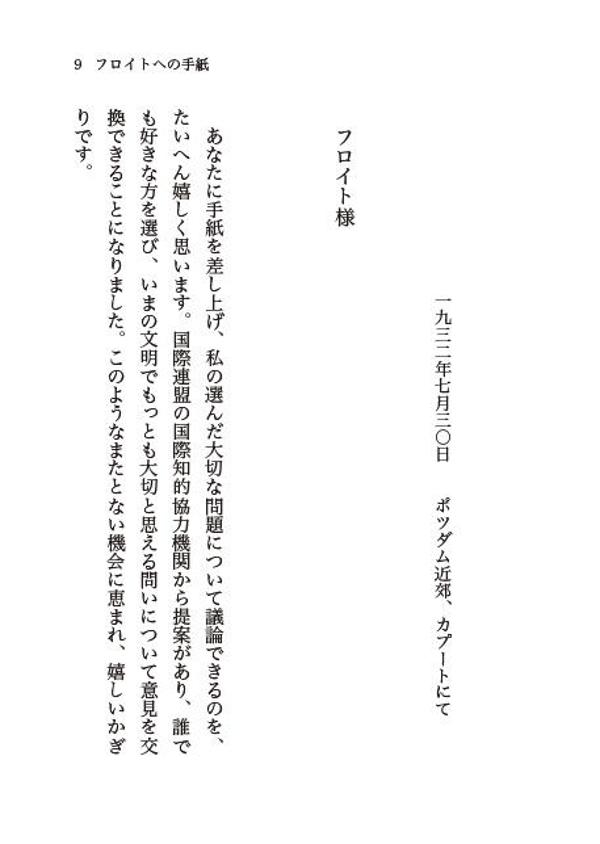 9 フロイトへの手紙
一九三二年七月三〇日 ポツダム近郊、カプートにて
フロイト様
あなたに手紙を差し上げ、私の選んだ大切な問題について議論できるのを、
たいへん嬉しく思います。国際連盟の国際知的協力機関から提案があり、誰で
も好きな方を選び、いまの文明でもっとも大切と思える問いについて意見を交
換できることになりました。このようなまたとない機会に恵まれ、嬉しいかぎ
りです。